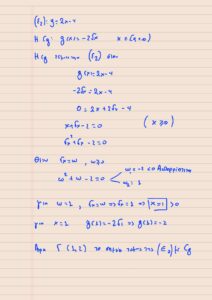 (ε₂): y = 2x-4
Η Cg: g(x) = -2√x    x ∈ [0,+∞)
Η Cg τέμνει την (ε₂) όταν
g(x) = 2x-4
-2√x = 2x-4
0 = 2x+2√x-4
x+√x-2=0    (x ≥ 0)
√x²+√x-2=0
Θέτω √x=ω, ω≥0
ω²+ω-2=0    ω₁=-2<0 Απορρίπτεται
ω₂=1
για ω=1, √x=ω ⇒ √x=1 ⇒ x=1 >0
για x=1    g(1)=-2√1 ⇒ g(1)=-2
Άρα Γ(1,2) το σημείο τομής της (ε₂) με Cg